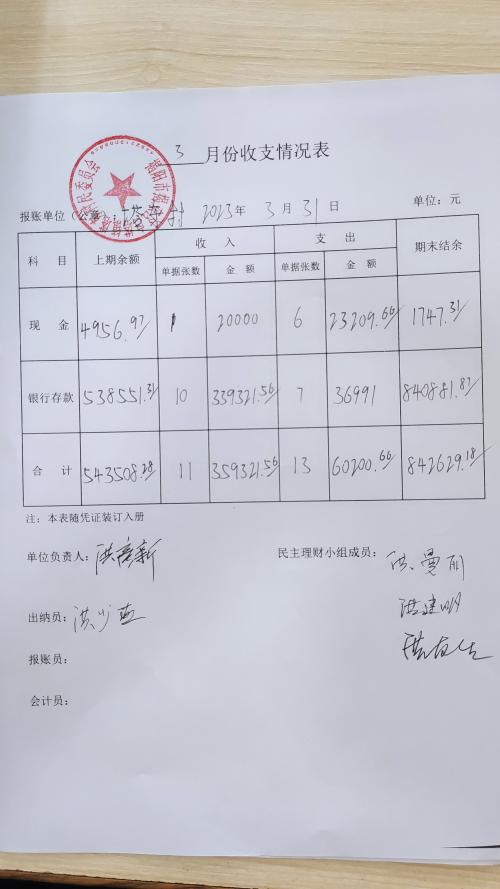 3 月份收支情况表
报账单位（公章）： 2023 年 3 月 31 日 单位：元
科 目 上期余额 收 入 支 出 期末结余
单据张数 金 额 单据张数 金 额
现 金 4956.97 1 20000 6 23209.66 1747.31
银行存款 538551.31 10 339321.56 7 36991 840881.87
合 计 543508.28 11 359321.56 13 60200.66 842629.18
注：本表随凭证装订入册
单位负责人： 民主理财小组成员：
洪建明
出纳员：洪少
报账员：
会计员：